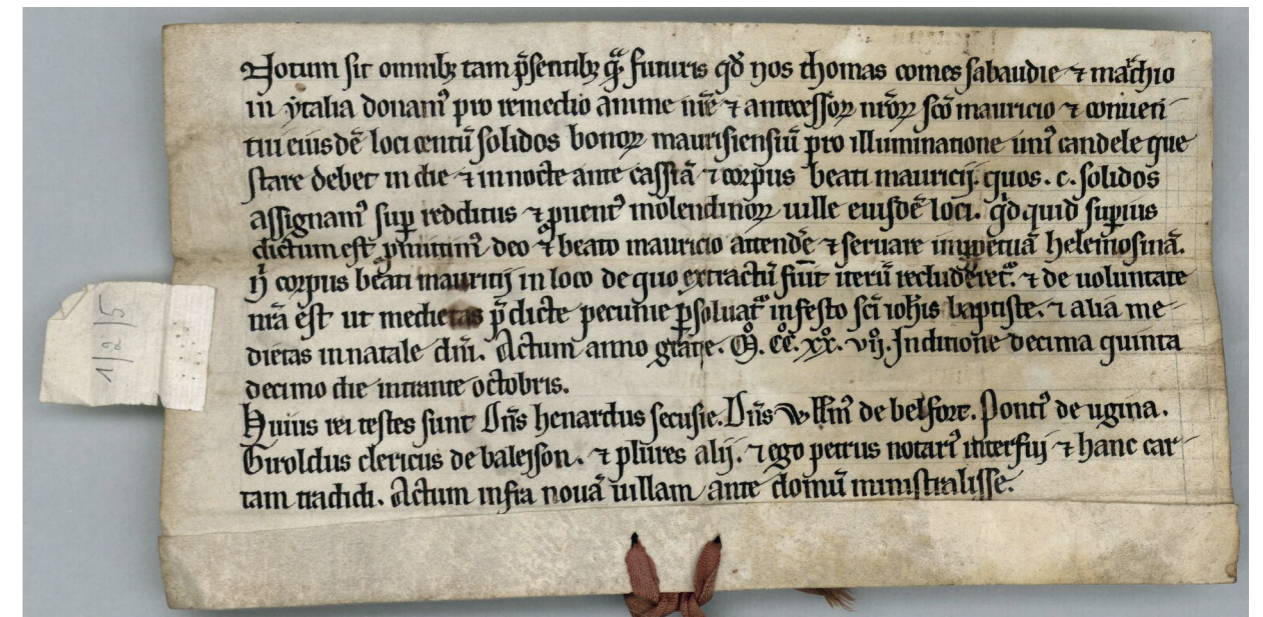 Notum sit omnibꝫ tam p̄sentibꝫ qͣ̄ futuris qd̄ nos thomas comes sabaudie ⁊ mͣrchio
in ytalia donamꝰ pro remedio anime nr̄e ⁊ antecessoꝝ nr̄oꝝ sc̄o mauricio ⁊ conuen
tui eiusdē loci centū solidos bonoꝝ maurisiensiū pro illuminatione uniꝰ candele que
stare debet in die ⁊ in nocte ante cassiā ⁊ corpus beati mauricij. quos .c. solidos
assignamꝰ suꝑ redditus ⁊ ꝓuentꝰ molendinoꝝ uille euisdē loci. qd̄ quid suꝑius
dictum est ꝓmittimꝰ deo ⁊ beato mauricio attendē ⁊ seruare in ꝑpetuā helemosinā.
corpus beati mauritij in loco de quo extractū fuit iterū recluderet̄ ⁊ de uoluntate
nrā est ut medietas p̄dicte pecunie ꝑsoluatͬ in festo sc̄i ioh̄is baptiste. ⁊ aliā me
dietas in natale dn̄i. Actum anno grāe. Mͦ. CCͦ. XXͦ. vijͦ. Inditione decima quinta
decimo die intrante octobris.
Huius rei testes sunt Dn̄s henardus secusie. Dn̄s Wllm̄ꝰ de belfort. Pontiꝰ de ugina.
Giroldus clericus de baleison. ⁊ plures alij. ⁊ ego petrus notariꝰ interfuj ⁊ hanc car
tam tradidi. Actum infra nouā uillam ante domū ministralisse.
1/2/5